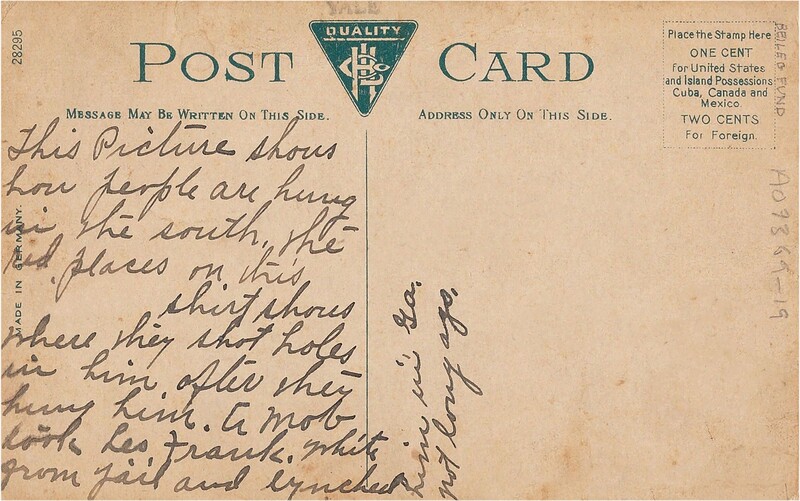 SALE
28295
POST CARD
QUALITY
MESSAGE MAY BE WRITTEN ON THIS SIDE.
ADDRESS ONLY ON THIS SIDE.
Place the Stamp Here
ONE CENT
For United States
and Island Possessions
Cuba, Canada and
Mexico.
TWO CENTS
For Foreign.
BELFO FUND
A09369-19
MADE IN GERMANY.
This Picture shows
how people are hung
in the south, the
red places on this
shirt shows
where they shot holes
in him after they
hung him. A Mob
took Leo Frank. white
from jail and lynched
him in Ga.
not long ago.